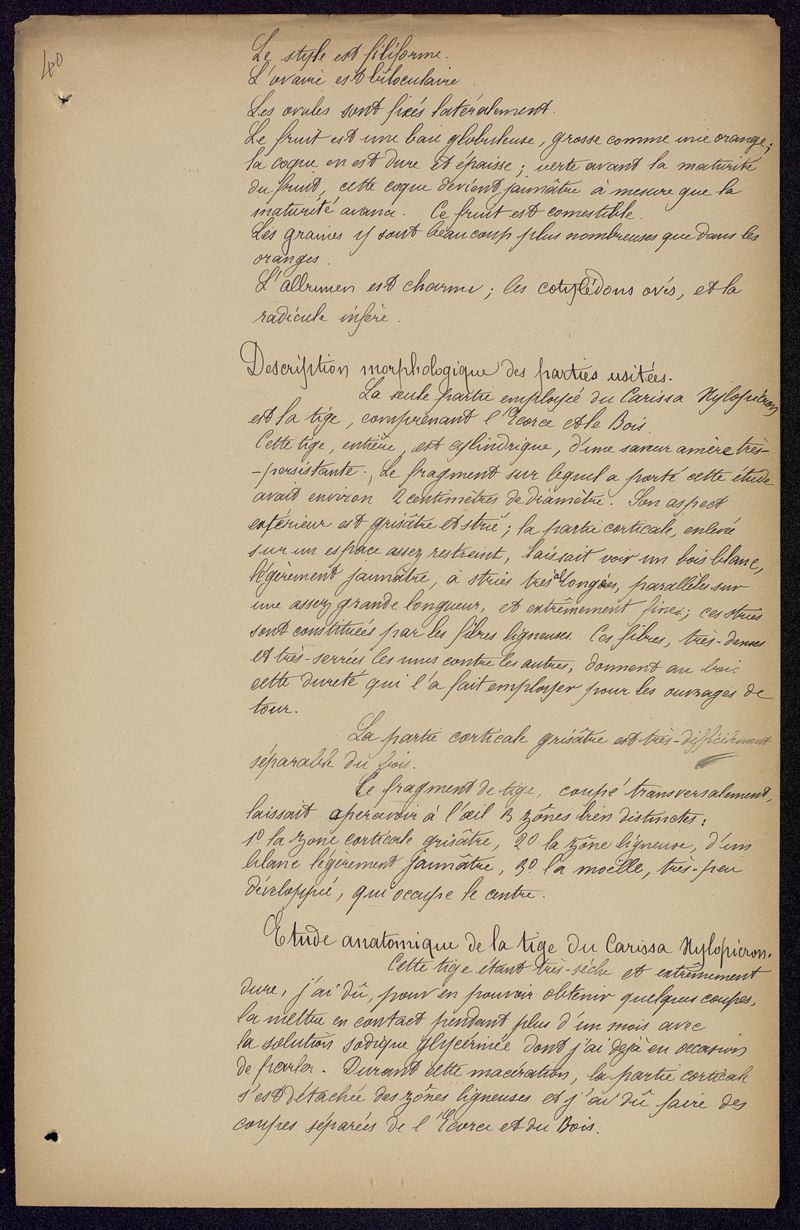 40
Le style est filiforme.
L'ovaire est biloculaire
Les ovules sont fixés latéralement.
Le fruit est une baie globuleuse, grosse comme une orange;
la coque en est dure et épaisse; verte avant la maturité
du fruit, cette coque devient jaunâtre à mesure que la
maturité avance. Ce fruit est comestible.
Les graines y sont beaucoup plus nombreuses que dans les
oranges.
L'albumen est charnu; les cotylédons ovés, et la
radicule infère.
Description morphologique des parties usitées.
La seule partie employée du Carissa Xylopicron
est la tige, comprenant l'Ecorce et le Bois.
Cette tige, entière, est cylindrique, d'une saveur amère très-
-persistante. Le fragment sur lequel a porté cette étude
avait environ 2 centimètres de diamètre. Son aspect
extérieur est grisâtre et strié; la partie corticale, enlevée
sur un espace assez restreint, laissait voir un bois blanc,
légèrement jaunâtre, à stries très allongées, parallèles sur
une assez grande longueur, et extrêmement fines; ces stries
sont constituées par les fibres ligneuses. Ces fibres, très-denses
et très-serrées les unes contre les autres, donnent au bois
cette dureté qui l'a fait employer pour les ouvrages de
tour.
La partie corticale grisâtre est très-difficilement
séparable du bois.
Le fragment de tige, coupé transversalement,
laissait apercevoir à l'œil 3 zônes bien distinctes:
1o la zone corticale grisâtre, 2o la zône ligneuse, d'un
blanc légèrement jaunâtre, 3o la moelle, très-peu
développée, qui occupe le centre.
Etude anatomique de la tige du Carissa Xylopicron.
Cette tige étant très-sèche et extrêmement
dure, j'ai dû, pour en pouvoir obtenir quelques coupes,
la mettre en contact pendant plus d'un mois avec
la solution sodique glycérinée dont j'ai déjà eu occasion
de parler. Durant cette macération, la partie corticale
s'est détachée des zônes ligneuses et j'ai dû faire des
coupes séparées de l'Ecorce et du Bois.